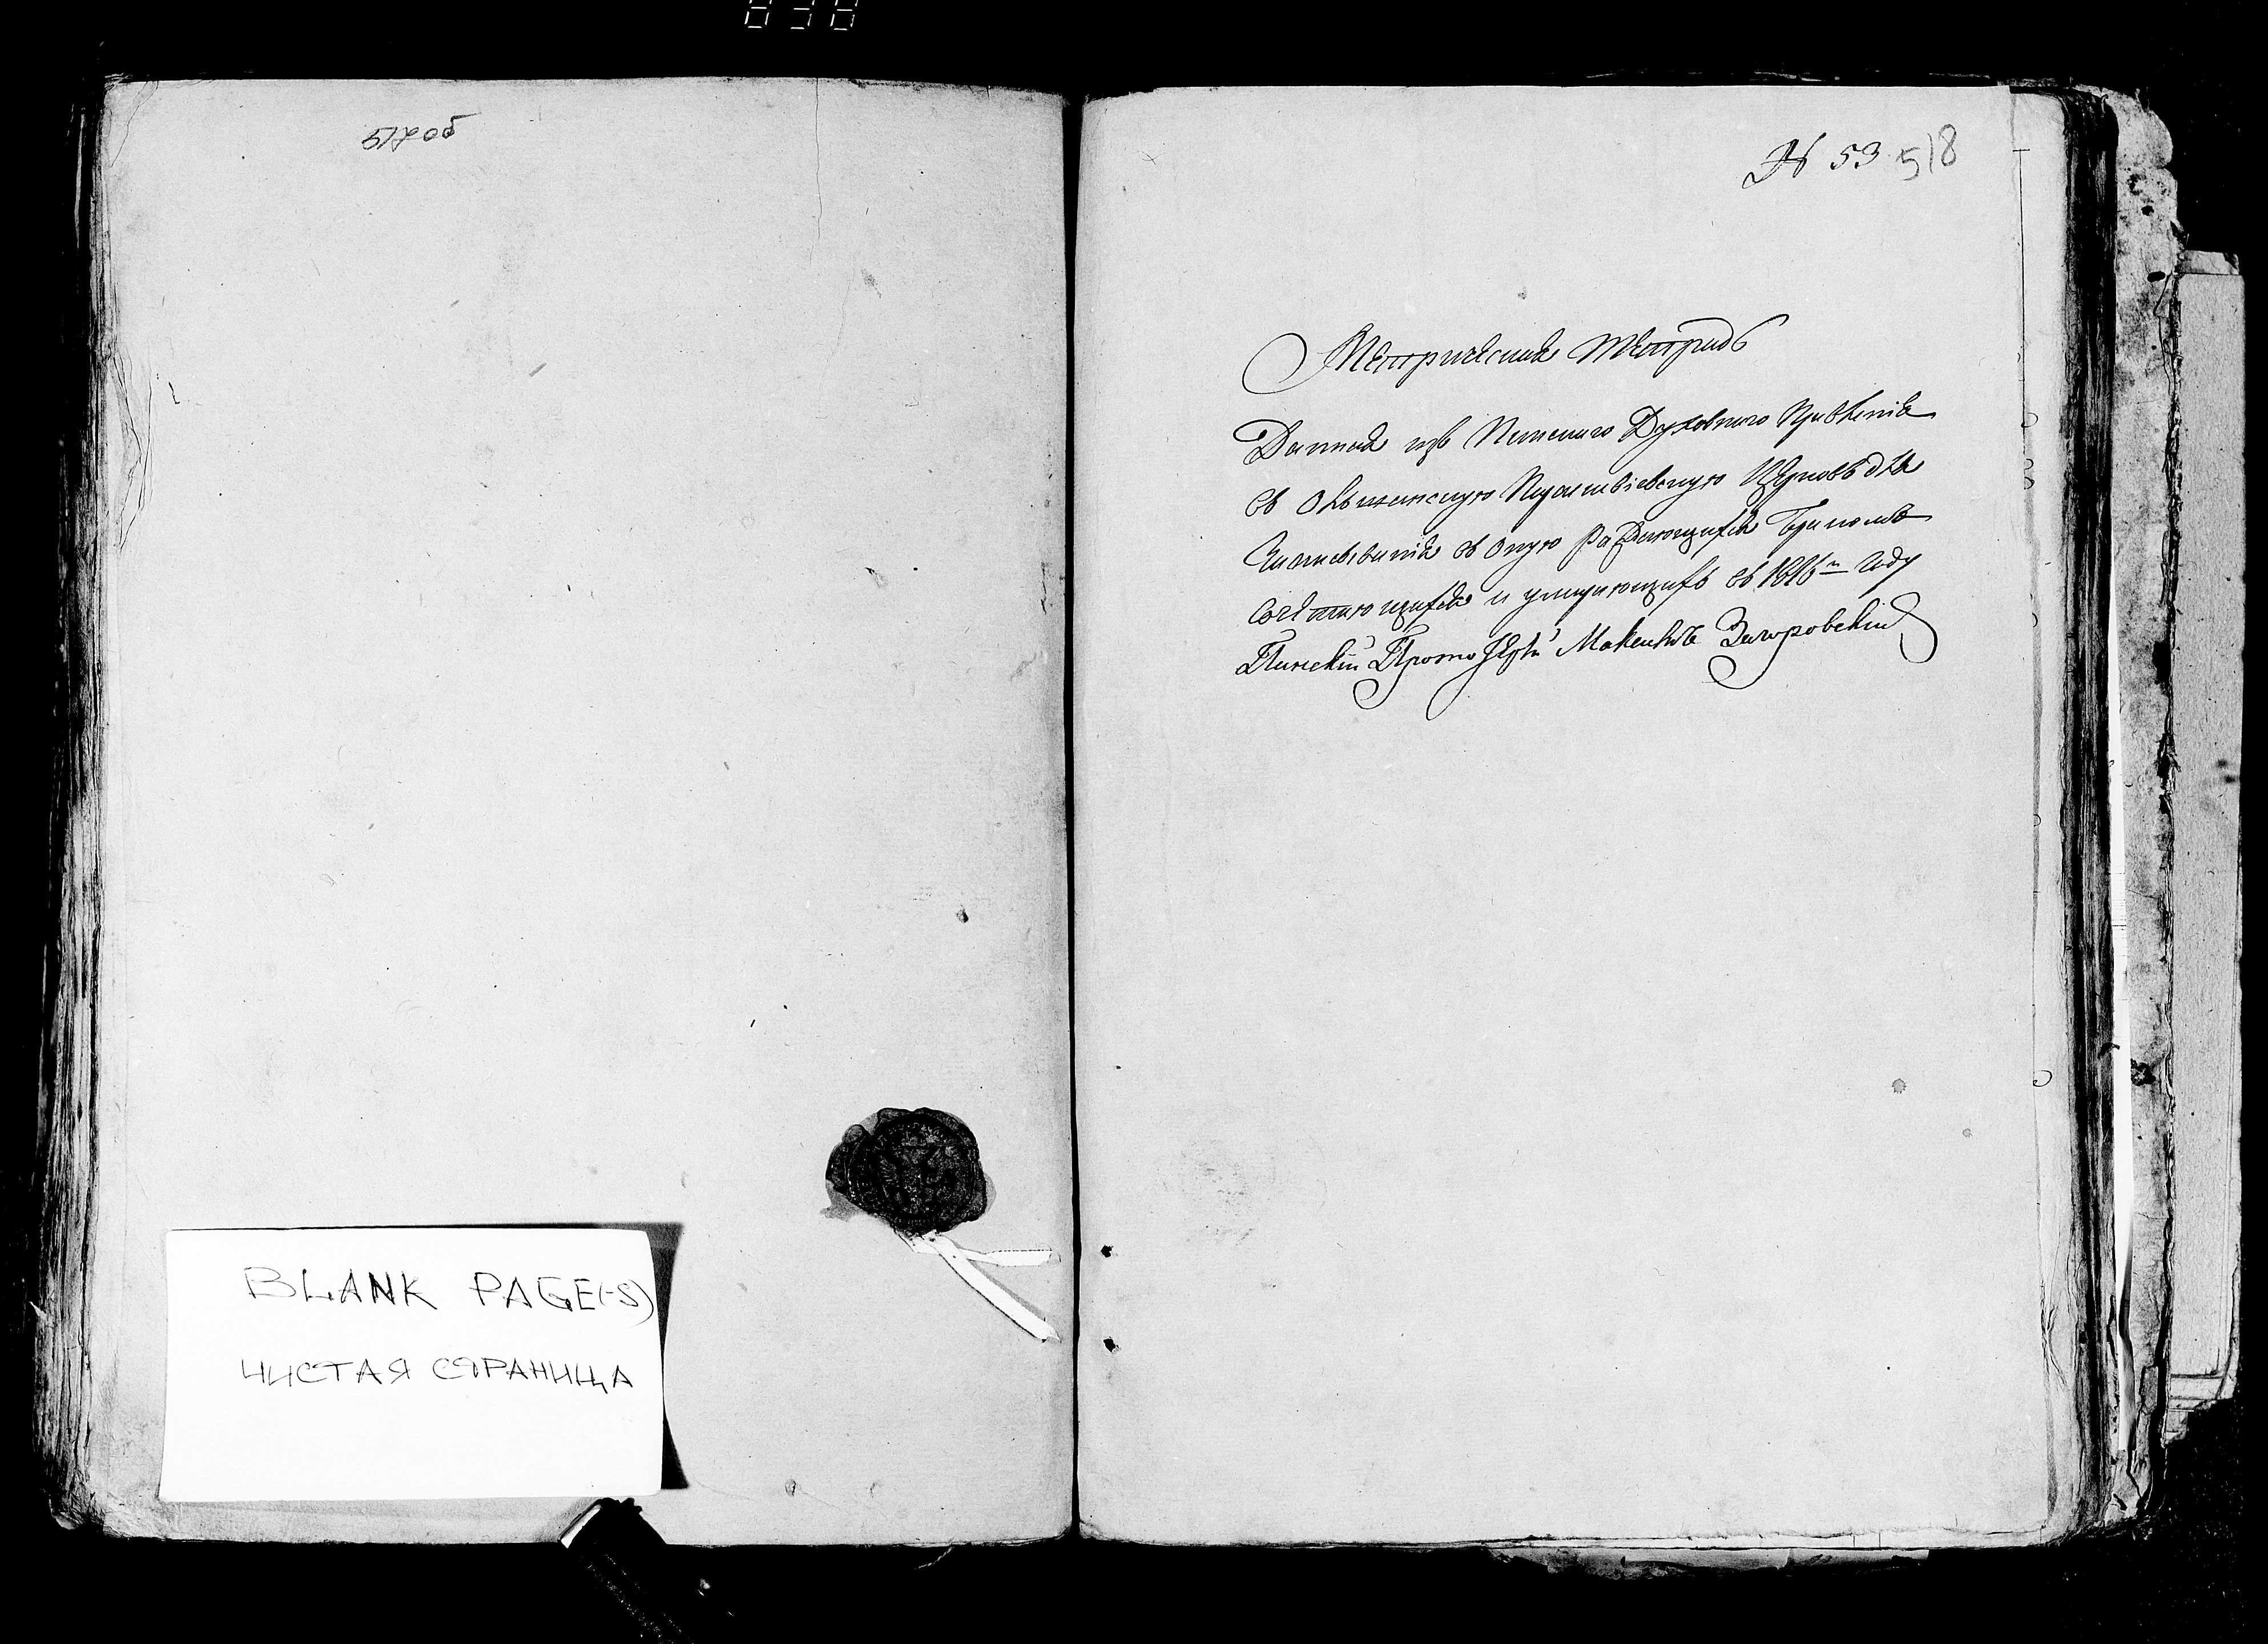 838
517об
BLANK PAGE(-S)
ЧИСТАЯ СТРАНИЦА
№ 53 518
Метрическая тетрадь
Данная изъ Пинскаго Духовнаго Правленія
въ Парасковіевскую Церковь для
Записыванія въ оную раждающихся Бракомъ
сочетающихся и умирающихъ въ 1816м году
Пинскій Протоіерей Загоровскій